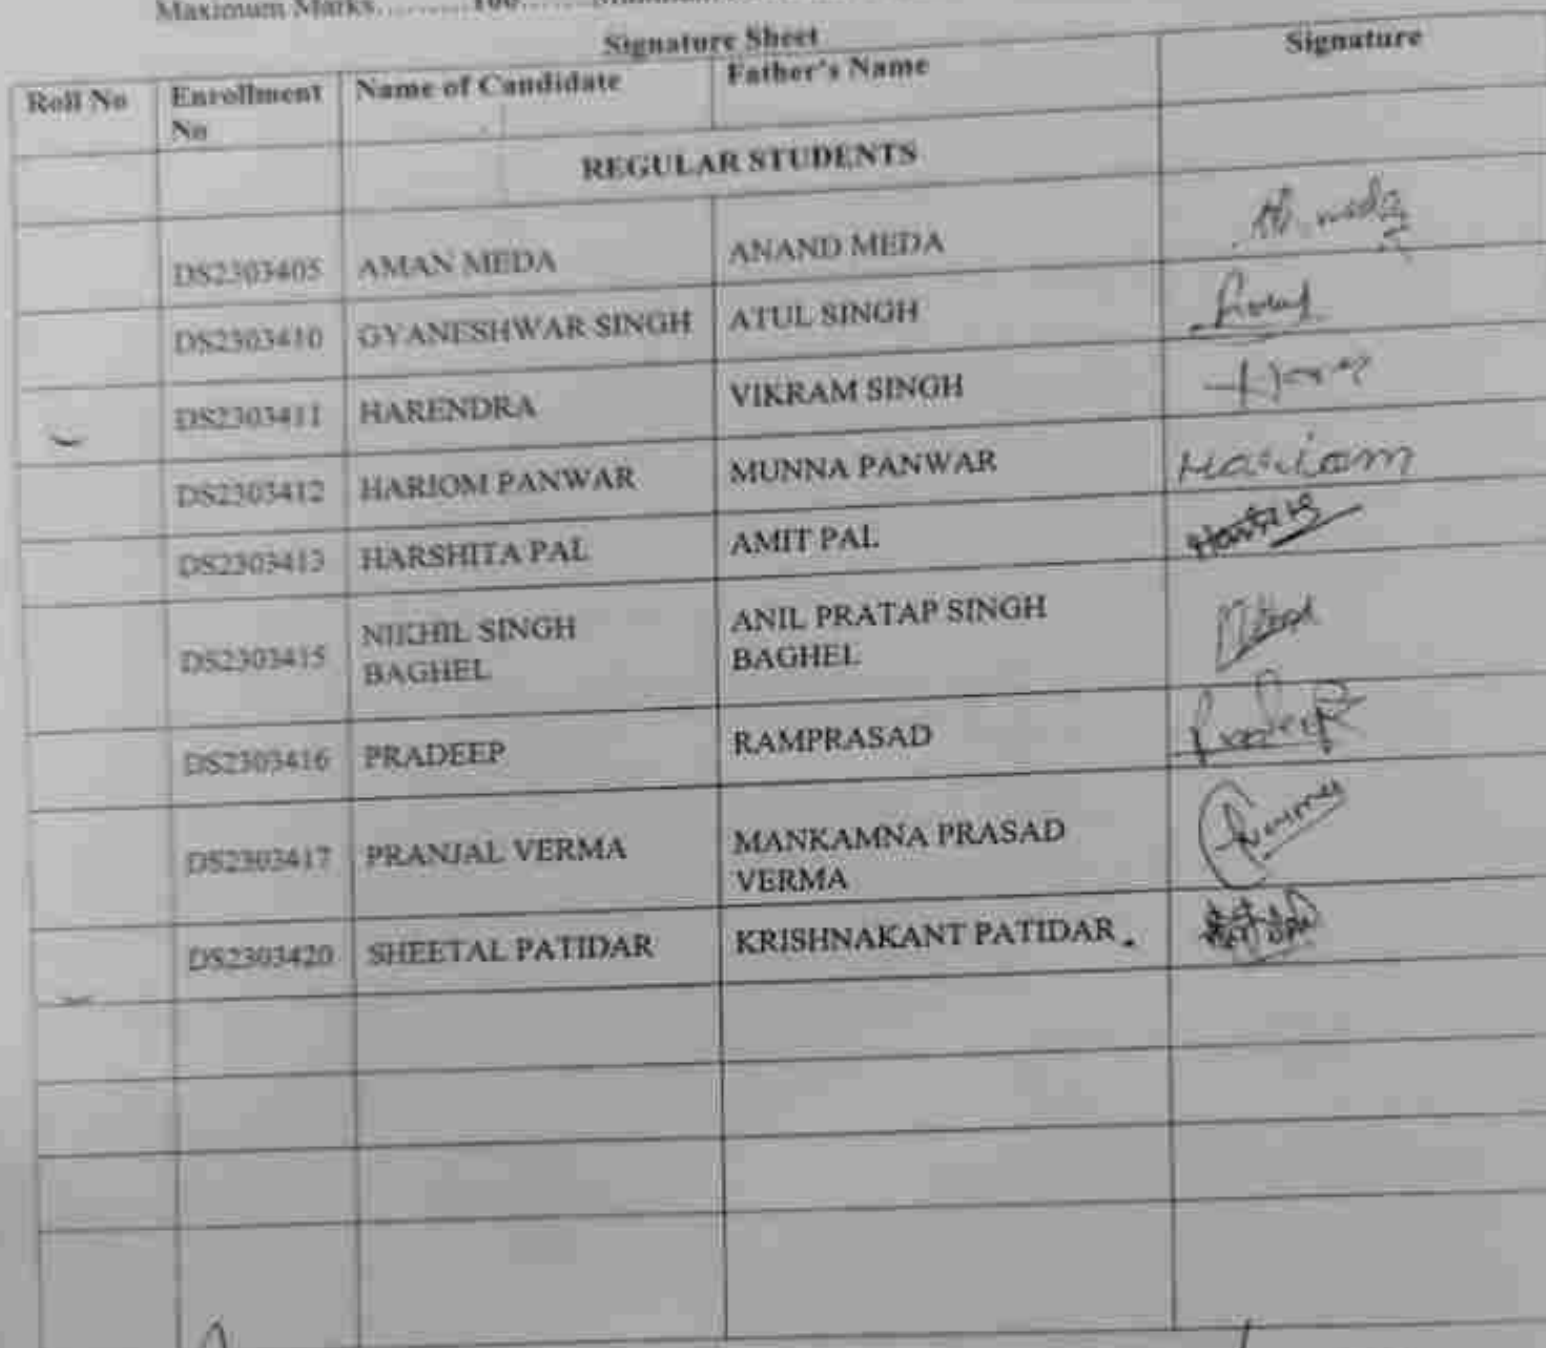 Maximum Marks..........100......
Signature Sheet
Roll No Enrollment No Name of Candidate Father's Name Signature
REGULAR STUDENTS
DS2303405 AMAN MEDA ANAND MEDA
DS2303410 GYANESHWAR SINGH ATUL SINGH
DS2303411 HARENDRA VIKRAM SINGH
DS2303412 HARIOM PANWAR MUNNA PANWAR Hariom
DS2303413 HARSHITA PAL AMIT PAL
DS2303415 NIKHIL SINGH BAGHEL ANIL PRATAP SINGH BAGHEL
DS2303416 PRADEEP RAMPRASAD Pradeep
DS2303417 PRANJAL VERMA MANKAMNA PRASAD VERMA
DS2303420 SHEETAL PATIDAR KRISHNAKANT PATIDAR